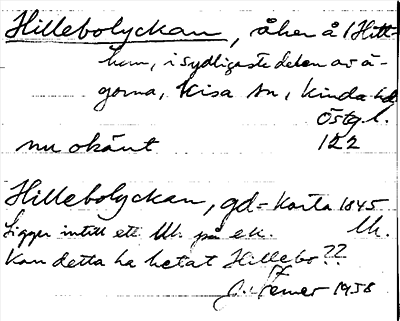 Hillebolyckan, åker å l Hitt-
hem, i sydligaste delen av ä-
gorna, Kisa sn, Kinda hd
Östg. l.
nu okänt 122
Hillebolyckan, gd-karta 1845
Ligger intill ett Ult. på ek. Ult.
Kan detta ha hetat Hillebo??
1958